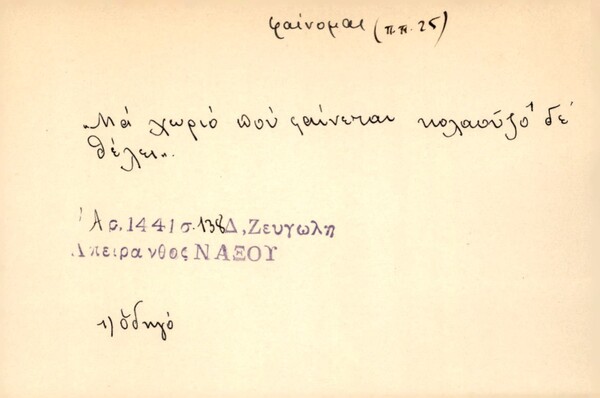 φαίνομαι (π.π. 25)
„Μά χωριό πού φαίνεται κολαοῦζο¹⁾ δέ
θέλει".
Ἀρ. 1441 σ. 138 Δ. Ζευγώλη
Απειρανθος ΝΑΞΟΥ
1) ὁδηγό